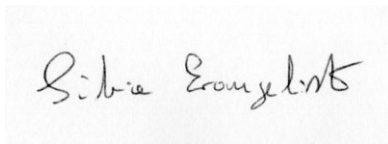 Silvia Evangelisti